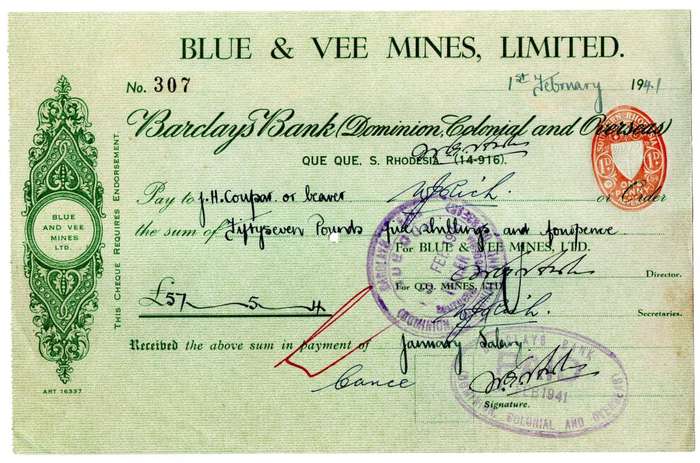 BLUE & VEE MINES, LIMITED.
No. 307
1st February 1941
Barclays Bank (Dominion, Colonial and Overseas)
QUE QUE, S. RHODESIA (14-916).
SOUTHERN RHODESIA
1D 1D
ONE PENNY
Pay to J.H. Coupar or bearer or Order
the sum of Fiftyseven Pounds fiveshillings and fourpence
For BLUE & VEE MINES, LTD.
Director.
For Q.Q. MINES, LTD.
£57 - 5 - 4
Secretaries.
Received the above sum in payment of January Salary
Signature.
BLUE
AND VEE
MINES
LTD.
THIS CHEQUE REQUIRES ENDORSEMENT.
ART 16337
BARCLAYS BANK
FEB 1941
(DOMINION COLONIAL AND OVERSEAS)